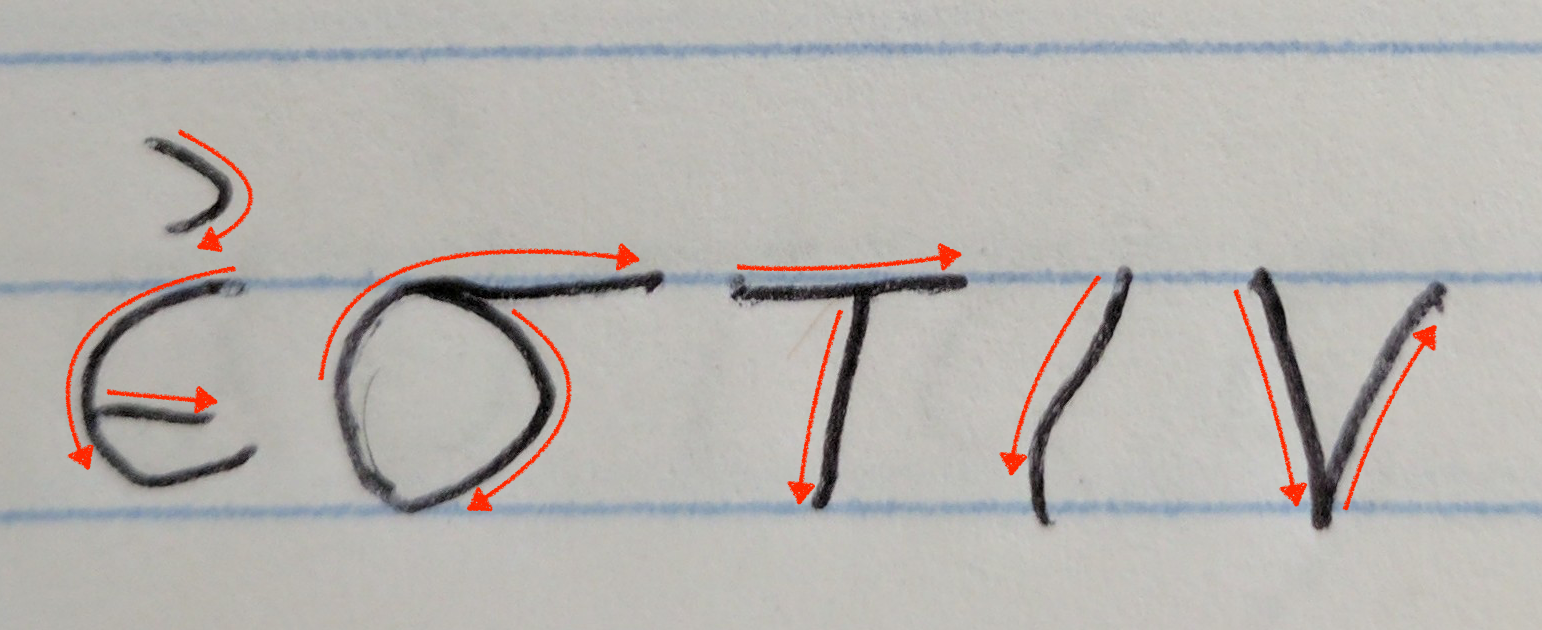 ἐστιν